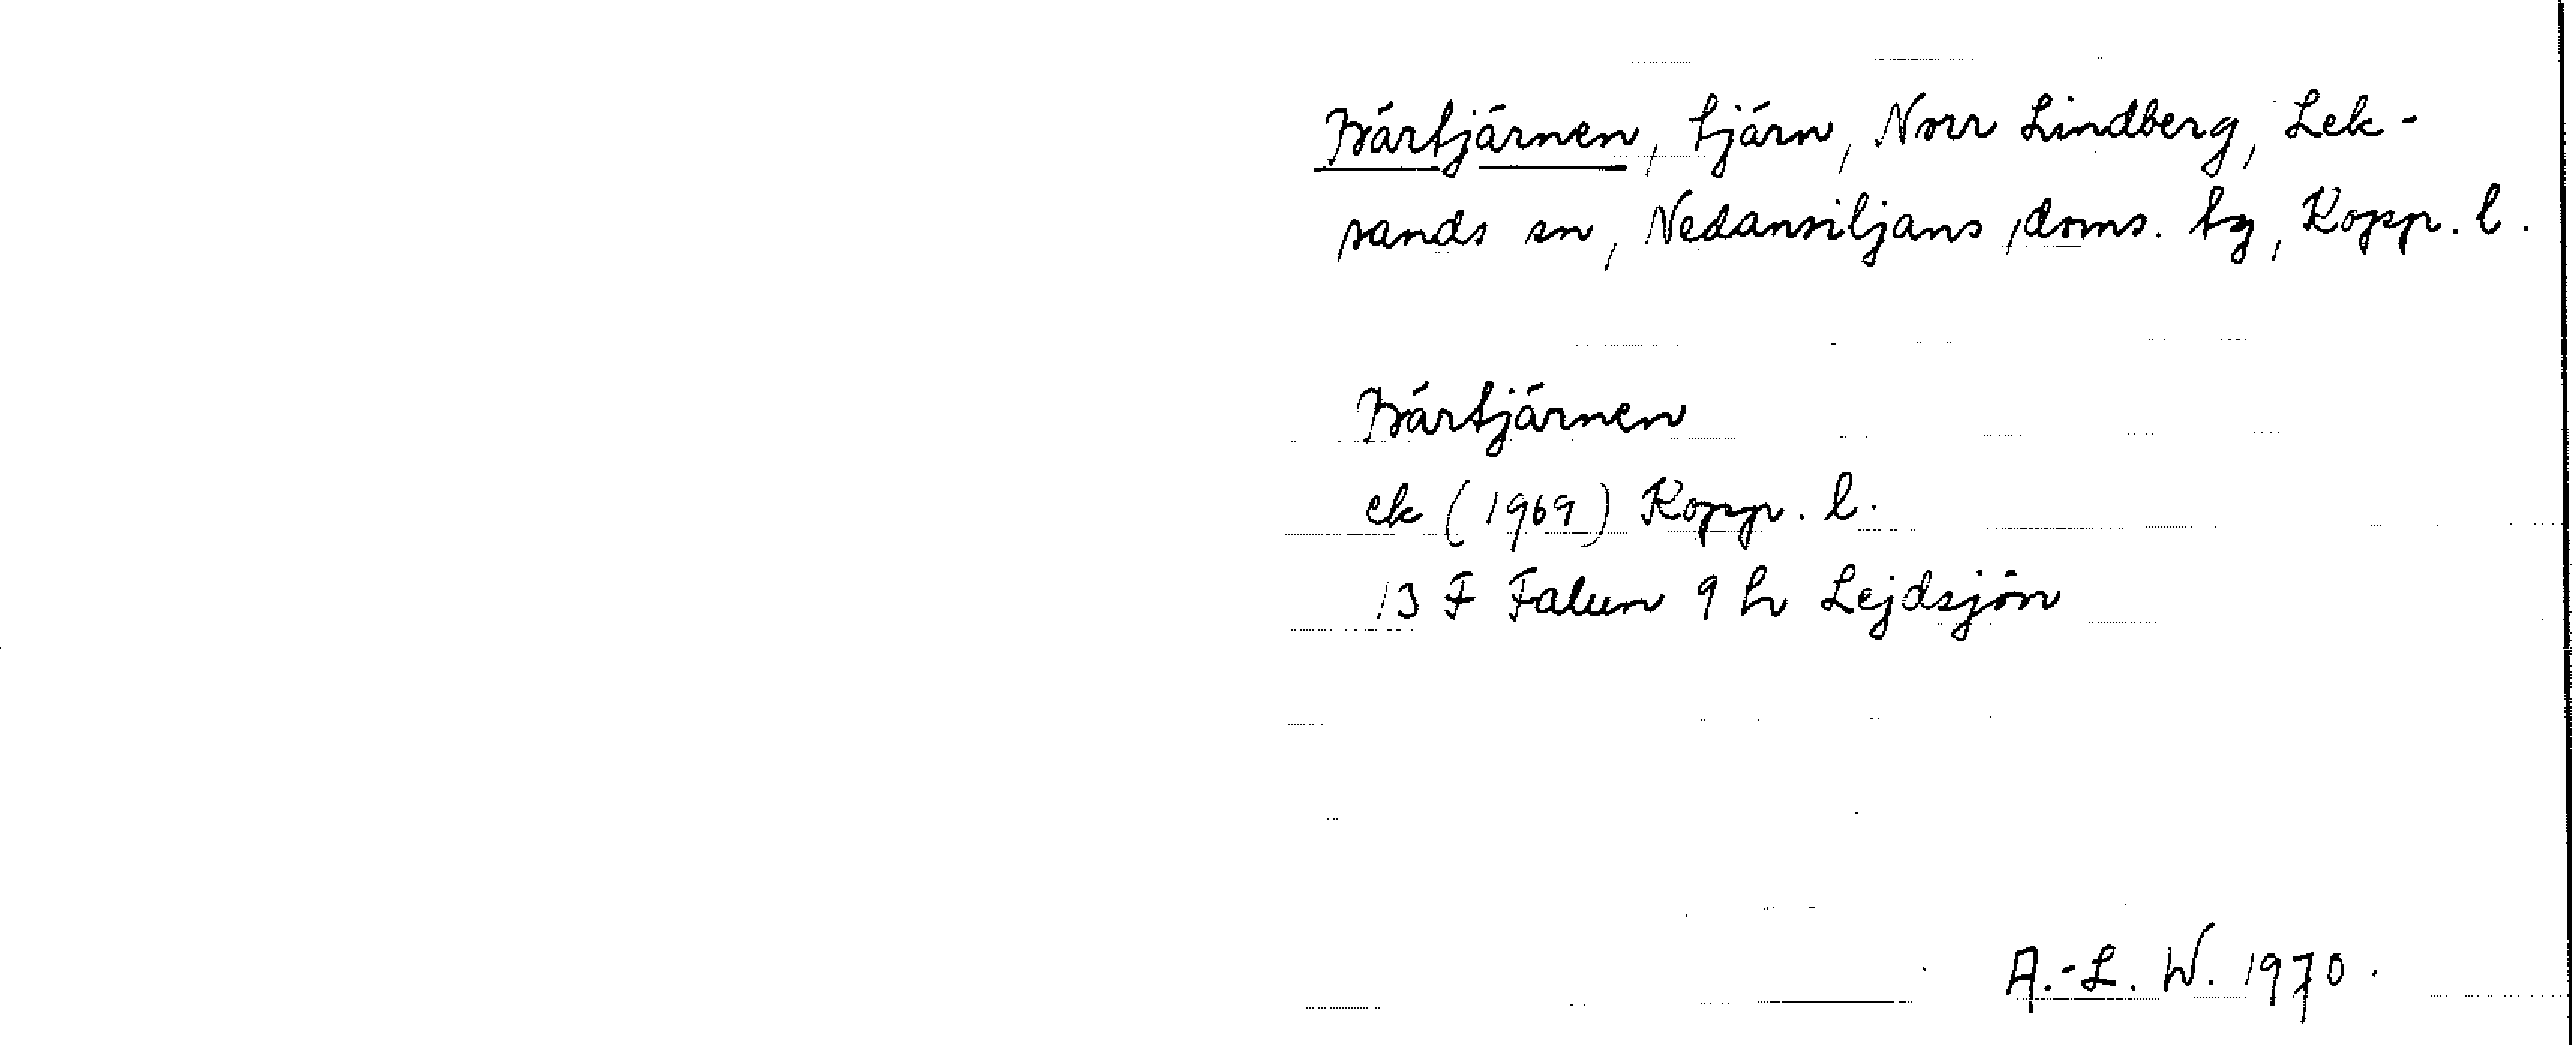 Bärtjärnen, tjärn, Norr Lindberg, Lek-
sands sn, Nedansiljans doms. tg, Kopp. l.
Bärtjärnen
ek (1969) Kopp. l.
13 F Falun 9 h Lejdsjön
A.-L. W. 1970.